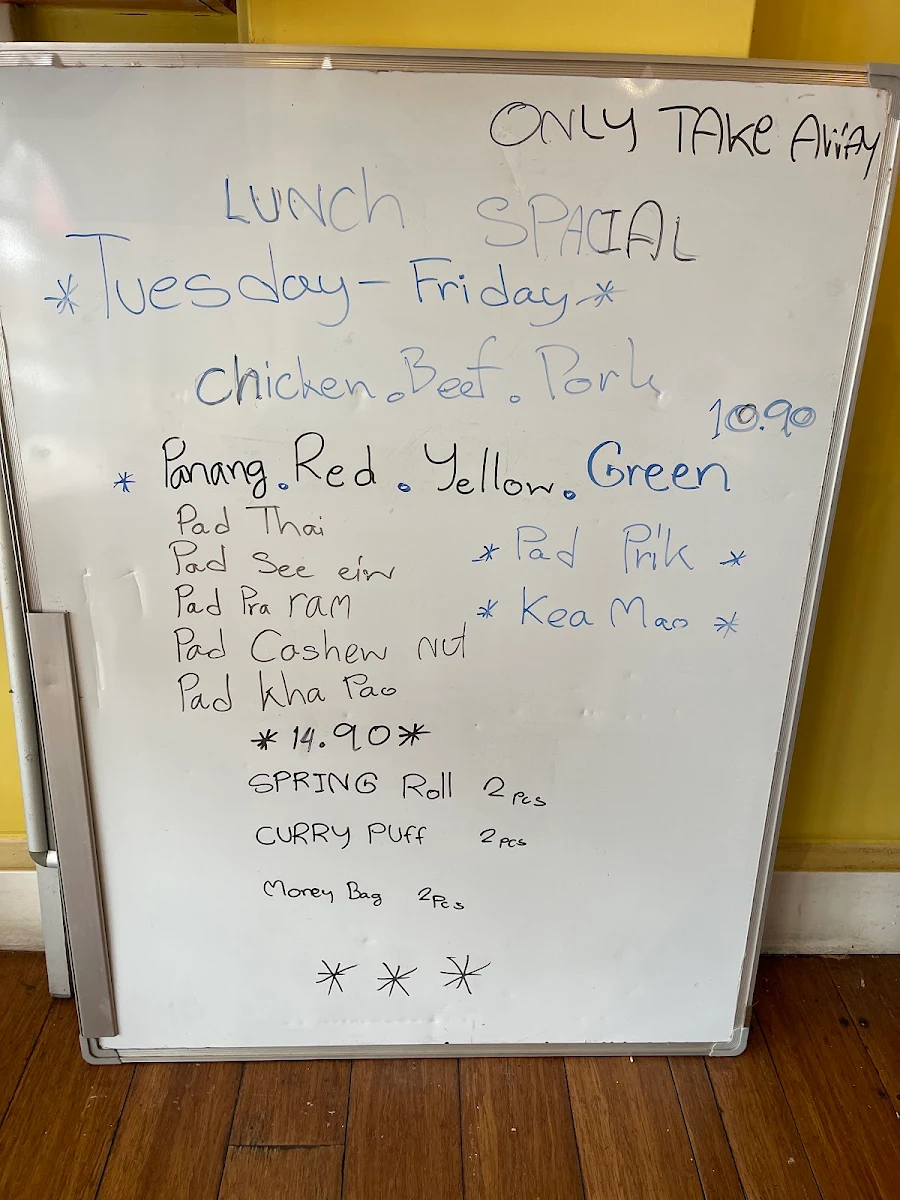 ONLY TAKe AWAY
LUNCh SPACIAL
*Tuesday-Friday*
Chicken.Beef.Pork
10.90
* Panang.Red.Yellow.Green
Pad Thai
Pad See eiw
* Pad Prik *
Pad Pra ram
* Kea Mao *
Pad Cashew nut
Pad kha Pao
*14.90*
SPRING Roll 2 pcs
CURRY PUff 2 pcs
Money Bag 2 Pcs
* * *